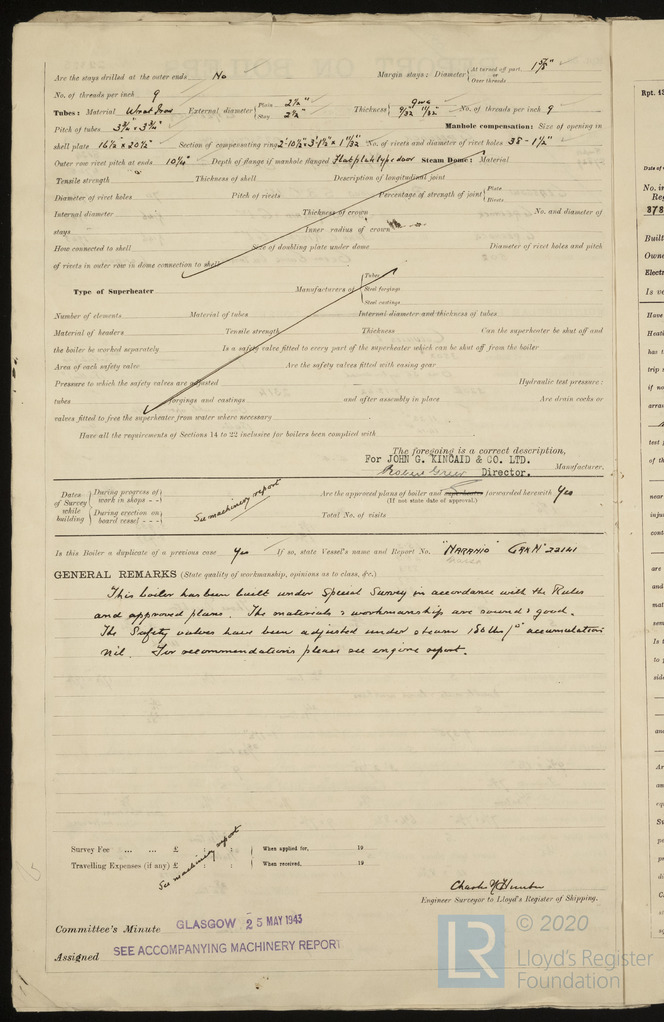 Are the stays drilled at the outer ends No Margin stays: Diameter { At turned off part, or Over threads
No. of threads per inch 9
Tubes: Material Wrot Iron External diameter { Plain 2½" Stay 2½" Thickness { 9wg 9/32 11/32" No. of threads per inch 9
Pitch of tubes 3¾" x 3¾" Manhole compensation: Size of opening in
shell plate 16½" x 20½" Section of compensating ring No. of rivets and diameter of rivet holes 38 - 1½"
Outer row rivet pitch at ends 10¼" Depth of flange if manhole flanged Flat plate type door Steam Dome: Material
Tensile strength Thickness of shell Description of longitudinal joint
Diameter of rivet holes Pitch of rivets Percentage of strength of joint { Plate Rivets
Internal diameter Thickness of crown No. and diameter of
stays Inner radius of crown
How connected to shell Size of doubling plate under dome Diameter of rivet holes and pitch
of rivets in outer row in dome connection to shell
Type of Superheater Manufacturers of { Tubes Steel forgings Steel castings
Number of elements Material of tubes Internal diameter and thickness of tubes
Material of headers Tensile strength Thickness Can the superheater be shut off and
the boiler be worked separately Is a safety valve fitted to every part of the superheater which can be shut off from the boiler
Area of each safety valve Are the safety valves fitted with easing gear
Pressure to which the safety valves are adjusted Hydraulic test pressure:
tubes forgings and castings and after assembly in place Are drain cocks or
valves fitted to free the superheater from water where necessary
Have all the requirements of Sections 14 to 22 inclusive for boilers been complied with
The foregoing is a correct description,
For JOHN G. KINCAID & CO. LTD.
Robert Greer Director. Manufacturer.
Dates of Survey while building { During progress of work in shops - - During erection on board vessel - - - See machinery report
Are the approved plans of boiler and superheater forwarded herewith Yes
(If not state date of approval.)
Total No. of visits
Is this Boiler a duplicate of a previous case Yes If so, state Vessel's name and Report No. "NARANIO" GRK No 22141
GENERAL REMARKS (State quality of workmanship, opinions as to class, &c.)
This boiler has been built under Special Survey in accordance with the Rules
and approved plans. The materials & workmanship are sound & good.
The Safety valves have been adjusted under steam 180 lbs/□" accumulation
nil. For recommendations please see engine report.
Survey Fee ... ... £ : : When applied for, 19
Travelling Expenses (if any) £ : : When received, 19
See machinery report
Charles N Hunter
Engineer Surveyor to Lloyd's Register of Shipping.
Committee's Minute GLASGOW 25 MAY 1943
Assigned SEE ACCOMPANYING MACHINERY REPORT
© 2020
LR Lloyd's Register
Foundation
Rpt. 13
Date of
No. in
Reg
878
Built
Owne
Electr
Is ve
Have